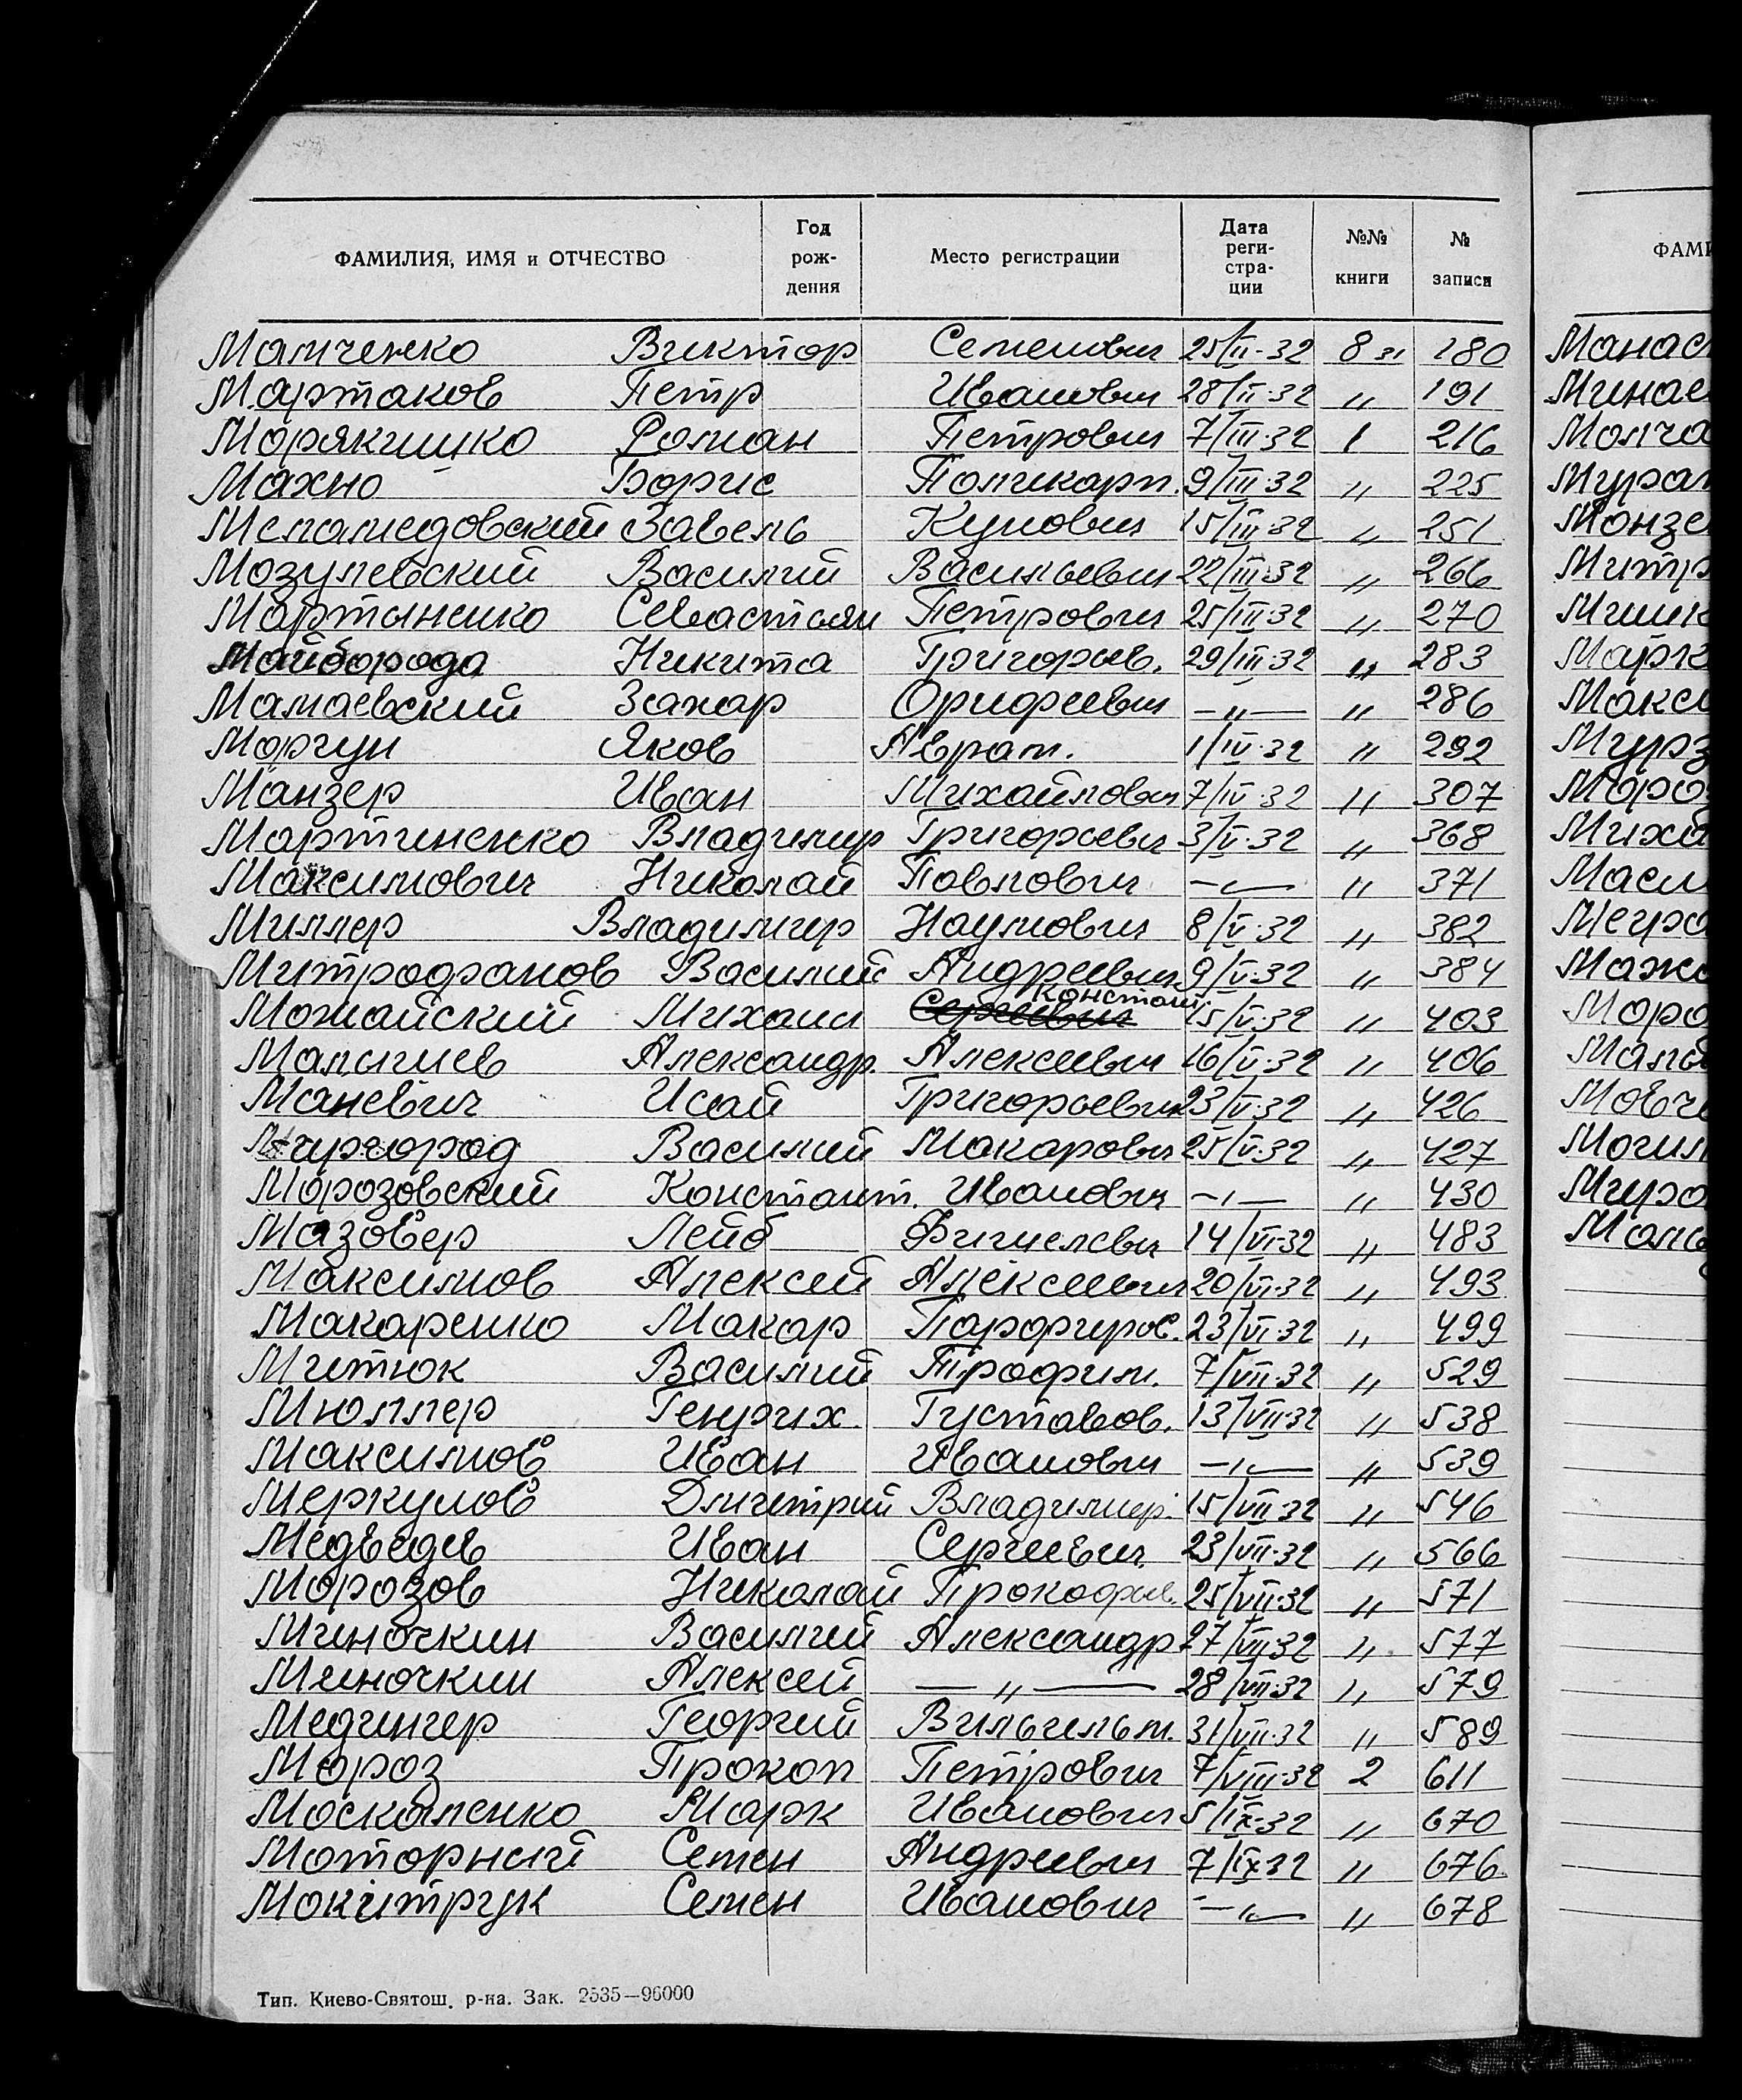 ФАМИЛИЯ, ИМЯ и ОТЧЕСТВО Год рож- дения Место регистрации Дата реги- стра- ции №№ книги № записи
Мамченко Виктор Семенович 25/II-32 8 31 180
Мартаков Петр Иванович 28/II-32 〃 191
Морякушко Роман Петрович 7/III-32 1 216
Махно Борис Поликарп. 9/III-32 〃 225
Меламедовский Завель Кунович 15/III-32 〃 251
Мозулевский Василий Васильевич 22/III-32 〃 266
Мартыненко Севастьян Петрович 25/III-32 〃 270
Майборода Никита Григорьев. 29/III-32 〃 283
Мамаевский Захар Орифеевич -〃- 〃 286
Моргун Яков Аврам. 1/IV-32 〃 292
Манзер Иван Михайлович 7/IV-32 〃 307
Мартиненко Владимир Григорьевич 3/V-32 〃 368
Максимович Николай Павлович -〃- 〃 371
Миллер Владимир Наумович 8/V-32 〃 382
Митрофанов Василий Андреевич 9/V-32 〃 384
Можайский Михаил Сергеевич Констант. 15/V-32 〃 403
Малышев Александр. Алексеевич 16/V-32 〃 406
Маневич Исай Григорьевич 23/V-32 〃 426
Миргород Василий Макарович 25/V-32 〃 427
Морозовский Констант. Иванович -〃- 〃 430
Мазовер Лейб Фишелевич 14/VI-32 〃 483
Максимов Алексей Алексеевич 20/VI-32 〃 493
Макаренко Макар Парфиров. 23/VI-32 〃 499
Митюк Василий Трофим. 7/VII-32 〃 529
Мюллер Генрих Густавов. 13/VII-32 〃 538
Максимов Иван Иванович -〃- 〃 539
Меркулов Дмитрий Владимир. 15/VII-32 〃 546
Медведев Иван Сергеевич 23/VII-32 〃 566
Морозов Николай Прокофьев. 25/VII-32 〃 571
Миночкин Василий Александр 27/VII-32 〃 577
Миночкин Алексей -〃- 28/VII-32 〃 579
Медингер Георгий Вильгельм. 31/VII-32 〃 589
Мороз Прокоп Петрович 7/VIII-32 2 611
Москаленко Марк Иванович 5/IX-32 〃 670
Моторный Семен Андреевич 7/IX-32 〃 676
Мокитрук Семен Иванович -〃- 〃 678
Тип. Киево-Святош. р-на. Зак. 2535—96000
ФАМИ
Манас
Минае
Молча
Муран
Монзе
Митр
Мишк
Марк
Макси
Мурз
Мороз
Миха
Масл
Негро
Маж
Моро
Маль
Мовч
Могил
Миро